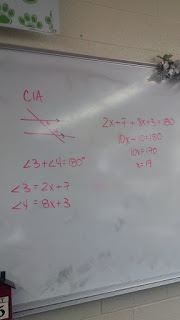 CIA
∠3+∠4=180°
∠3 = 2x+7
∠4 = 8x+3
2x+7+8x+3=180
10x-10=180
10x=170
x=19